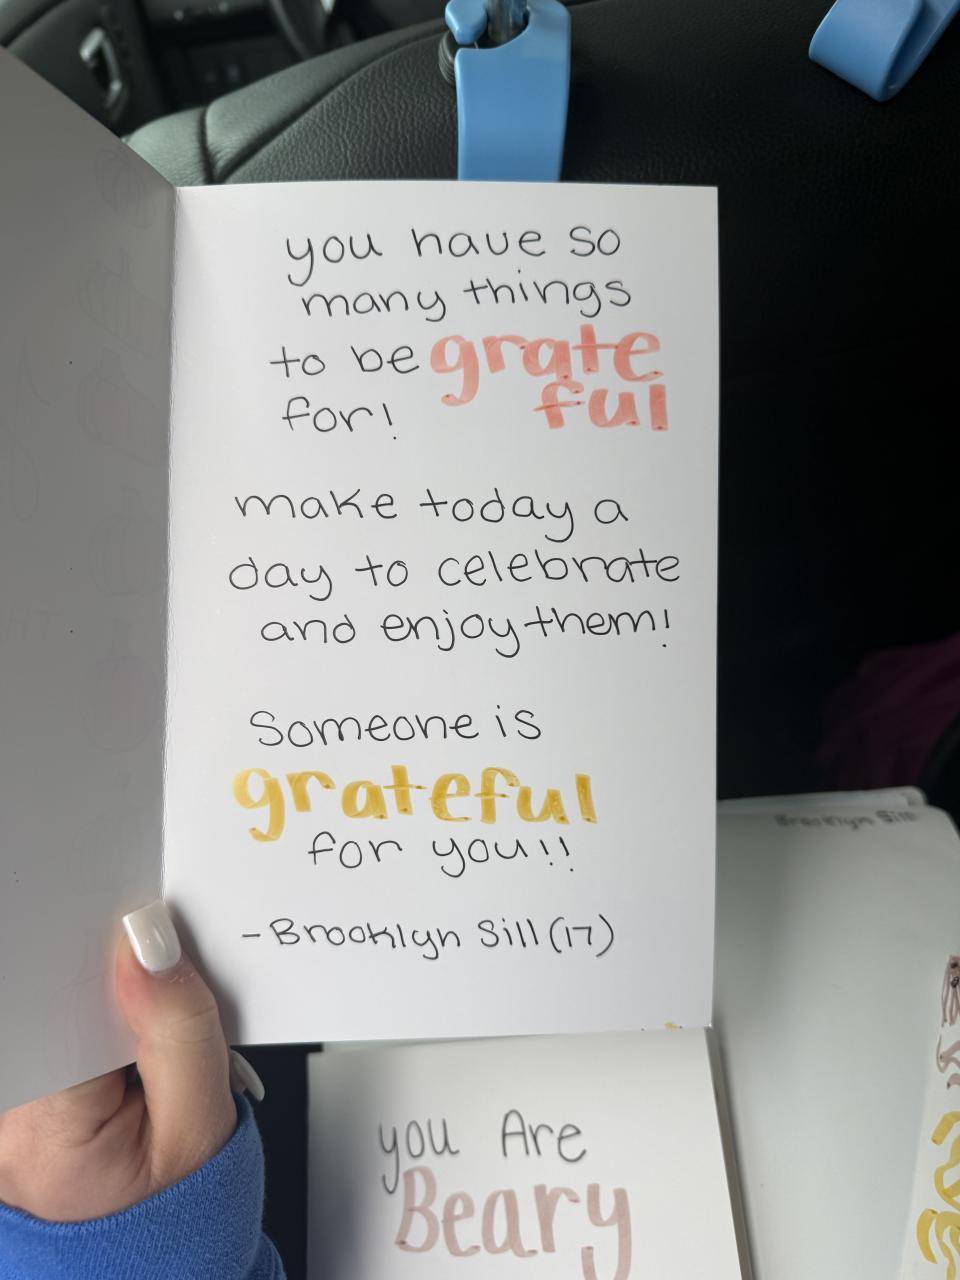 you have so
many things
to be grate
ful
for!
make today a
day to celebrate
and enjoy them!
Someone is
grateful
for you!!
- Brooklyn Sill (17)
Brooklyn Sill
you Are
Beary